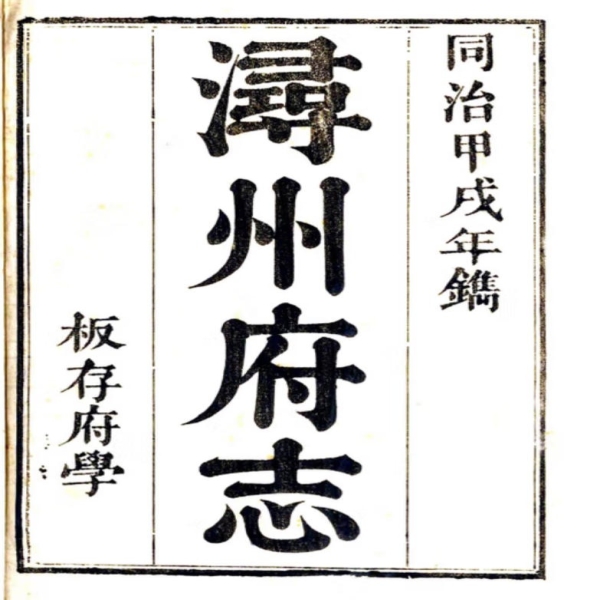 同治甲戌年鐫
潯州府志
板存府學